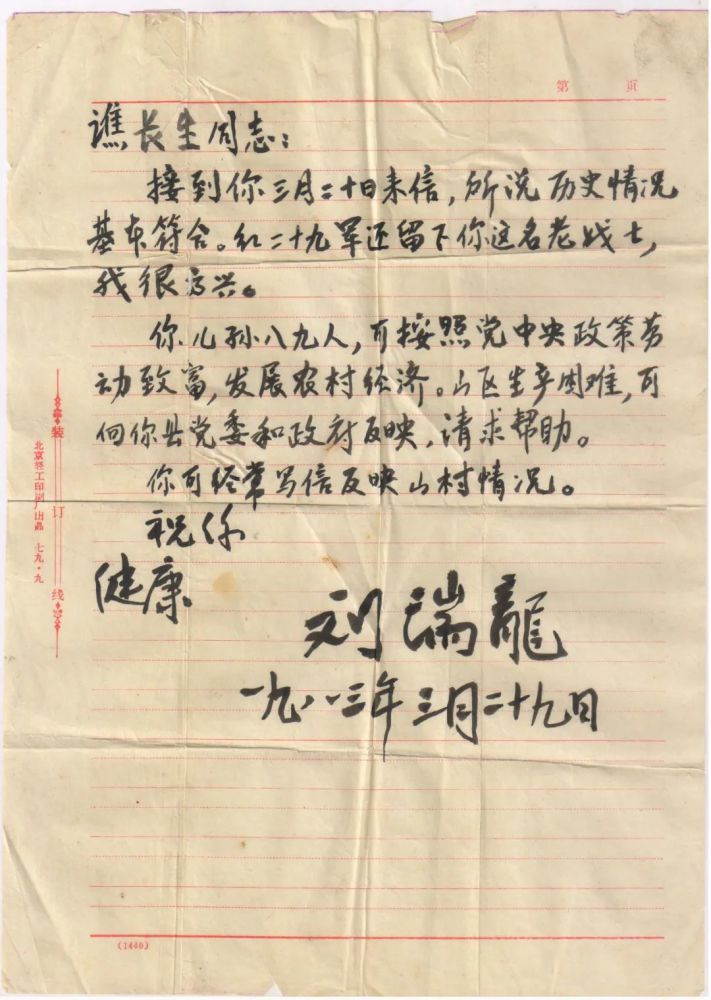 第 页
谯长生同志：
接到你三月二十日来信，所说历史情况
基本符合。红二十九军还留下你这名老战士，
我很高兴。
你儿孙八九人，可按照党中央政策劳
动致富，发展农村经济。山区生产困难，可
向你县党委和政府反映，请求帮助。
你可经常写信反映山村情况。
祝你
健康
刘瑞龍
一九八三年三月二十九日
装
订
线
北京轻工印刷厂出品 七九·九
(1440)